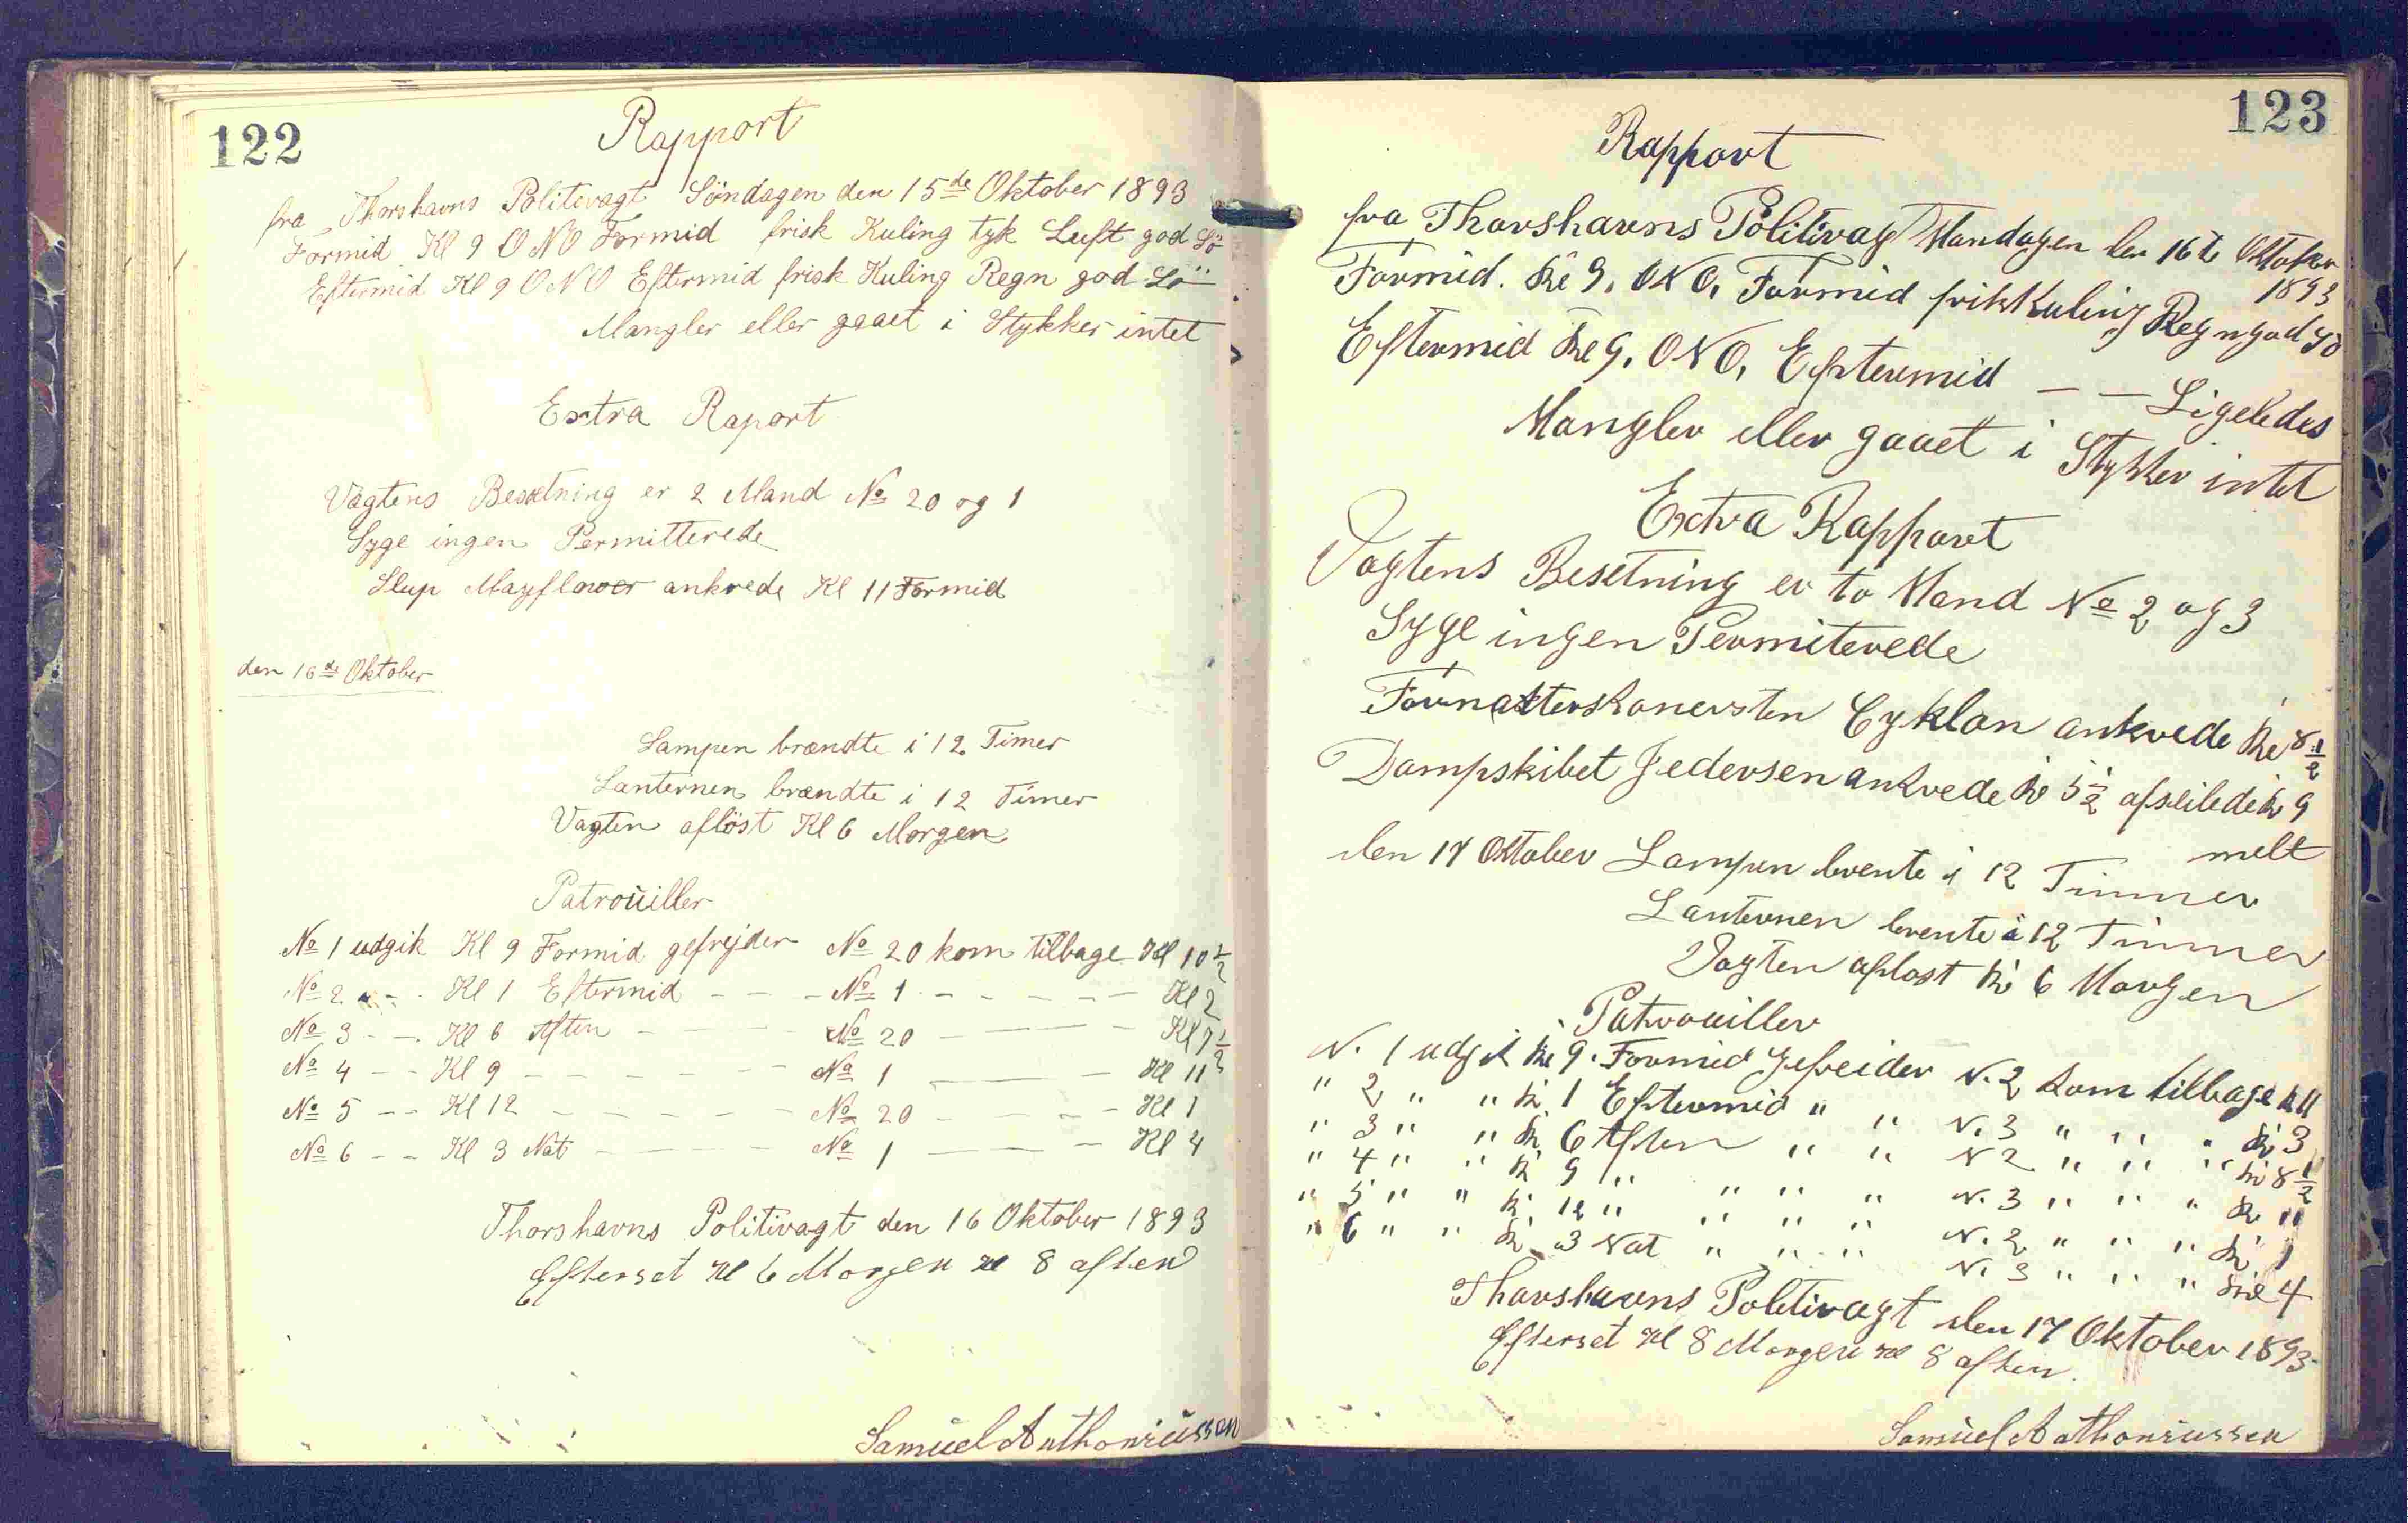 122
Rapport
fra Thorshavns Politivagt Söndagen den 15de Oktober 1893
Formid Kl 9 ONO Formid frisk Kuling tyk Luft god Sö
Eftermid Kl 9 ONO Eftermid frisk Kuling Regn god Sö
Mangler eller gaaet i Stykker intet
Extra Raport
Vagtens Besætning er 2 Mand No 20 og 1
Syge ingen Permitterede
Slup Mayflower ankrede Kl 11 Formid
den 16de Oktober
Lampen brændte i 12 Timer
Lanternen brændte i 12 Timer
Vagten aflöst Kl 6 Morgen
Patrouiller
No 1 udgik Kl 9 Formid gefrejder No 20 kom tilbage Kl 10 1/2
No 2 - - Kl 1 Eftermid - - - No 1 - - - - - Kl 2
No 3 - - Kl 6 Aften - - - - No 20 - - - - Kl 7 1/2
No 4 - - Kl 9 - - - - - - No 1 - - - Kl 11
No 5 - - Kl 12 - - - - - No 20 - - - - Kl 1
No 6 - - Kl 3 Nat - - - - No 1 - - - Kl 4
Thorshavns Politivagt den 16 Oktober 1893
Efterset Kl 6 Morgen Kl 8 aften
Samuel Anthoniussen
123
Rapport
fra Thorshavns Politivagt Mandagen den 16de Oktober
1893
Formid. Kl 9. ONO. Formid frisk Kuling Regn god Sö
Eftermid Kl 9. ONO. Eftermid - - Ligeledes
Mangler eller gaaet i Stykker intet
Extra Rapport
Vagtens Besetning er to Mand No 2 og 3
Syge ingen Permiterede
Cyklon ankrede Kl 8 1/2
Dampskibet ankrede Kl 5 1/2 afseilede Kl 9
melt
den 17 Oktober Lampen brente i 12 Timmer
Lanternen brente i 12 Timmer
Vagten aflost Kl 6 Morgen
Patrouiller
N. 1 udgik Kl 9. Formid Gefreider N. 2 kom tilbage Kl 11
" 2 " " Kl 1 Eftermid " " N. 3 " " " Kl 3
" 3 " " Kl 6 Aften " " N 2 " " " Kl 8 1/2
" 4 " " Kl 9 " " " " N. 3 " " " Kl 11
" 5 " " Kl 12 " " " " N. 2 " " " Kl 1
" 6 " " Kl 3 Nat " " " N. 3 " " " Kl 4
Thorshavns Politivagt den 17 Oktober 1893
Efterset Kl 8 Morgen Kl 8 aften.
Samuel Anthoniussen